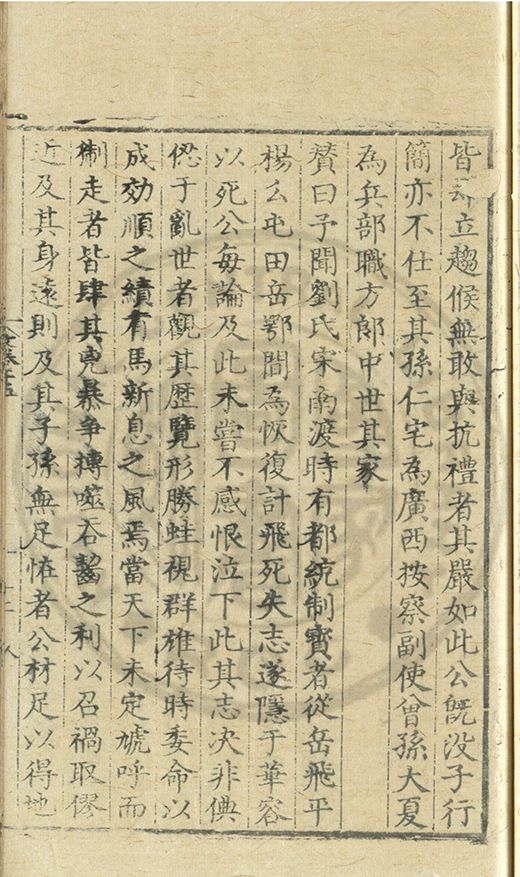 皆立趨候無敢與抗禮者其嚴如此公旣没子行
簡亦不仕至其孫仁宅為廣西按察副使曾孫大夏
為兵部職方郎中世其家
贊曰予聞劉氏宋南渡時有都統制寳者從岳飛平
楊么屯田岳鄂間為恢復計飛死失志遂隱于華容
以死公每論及此未嘗不感恨泣下此其志决非倎
偬于亂世者觀其歷覽形勝蛙視群雄待時委命以
成効順之績有馬新息之風焉當天下未定號呼而
制走者皆肆其兇暴爭搏噬吞齧之利以召禍取僇
近及其身遠則及其子孫無足恠者公材足以得地